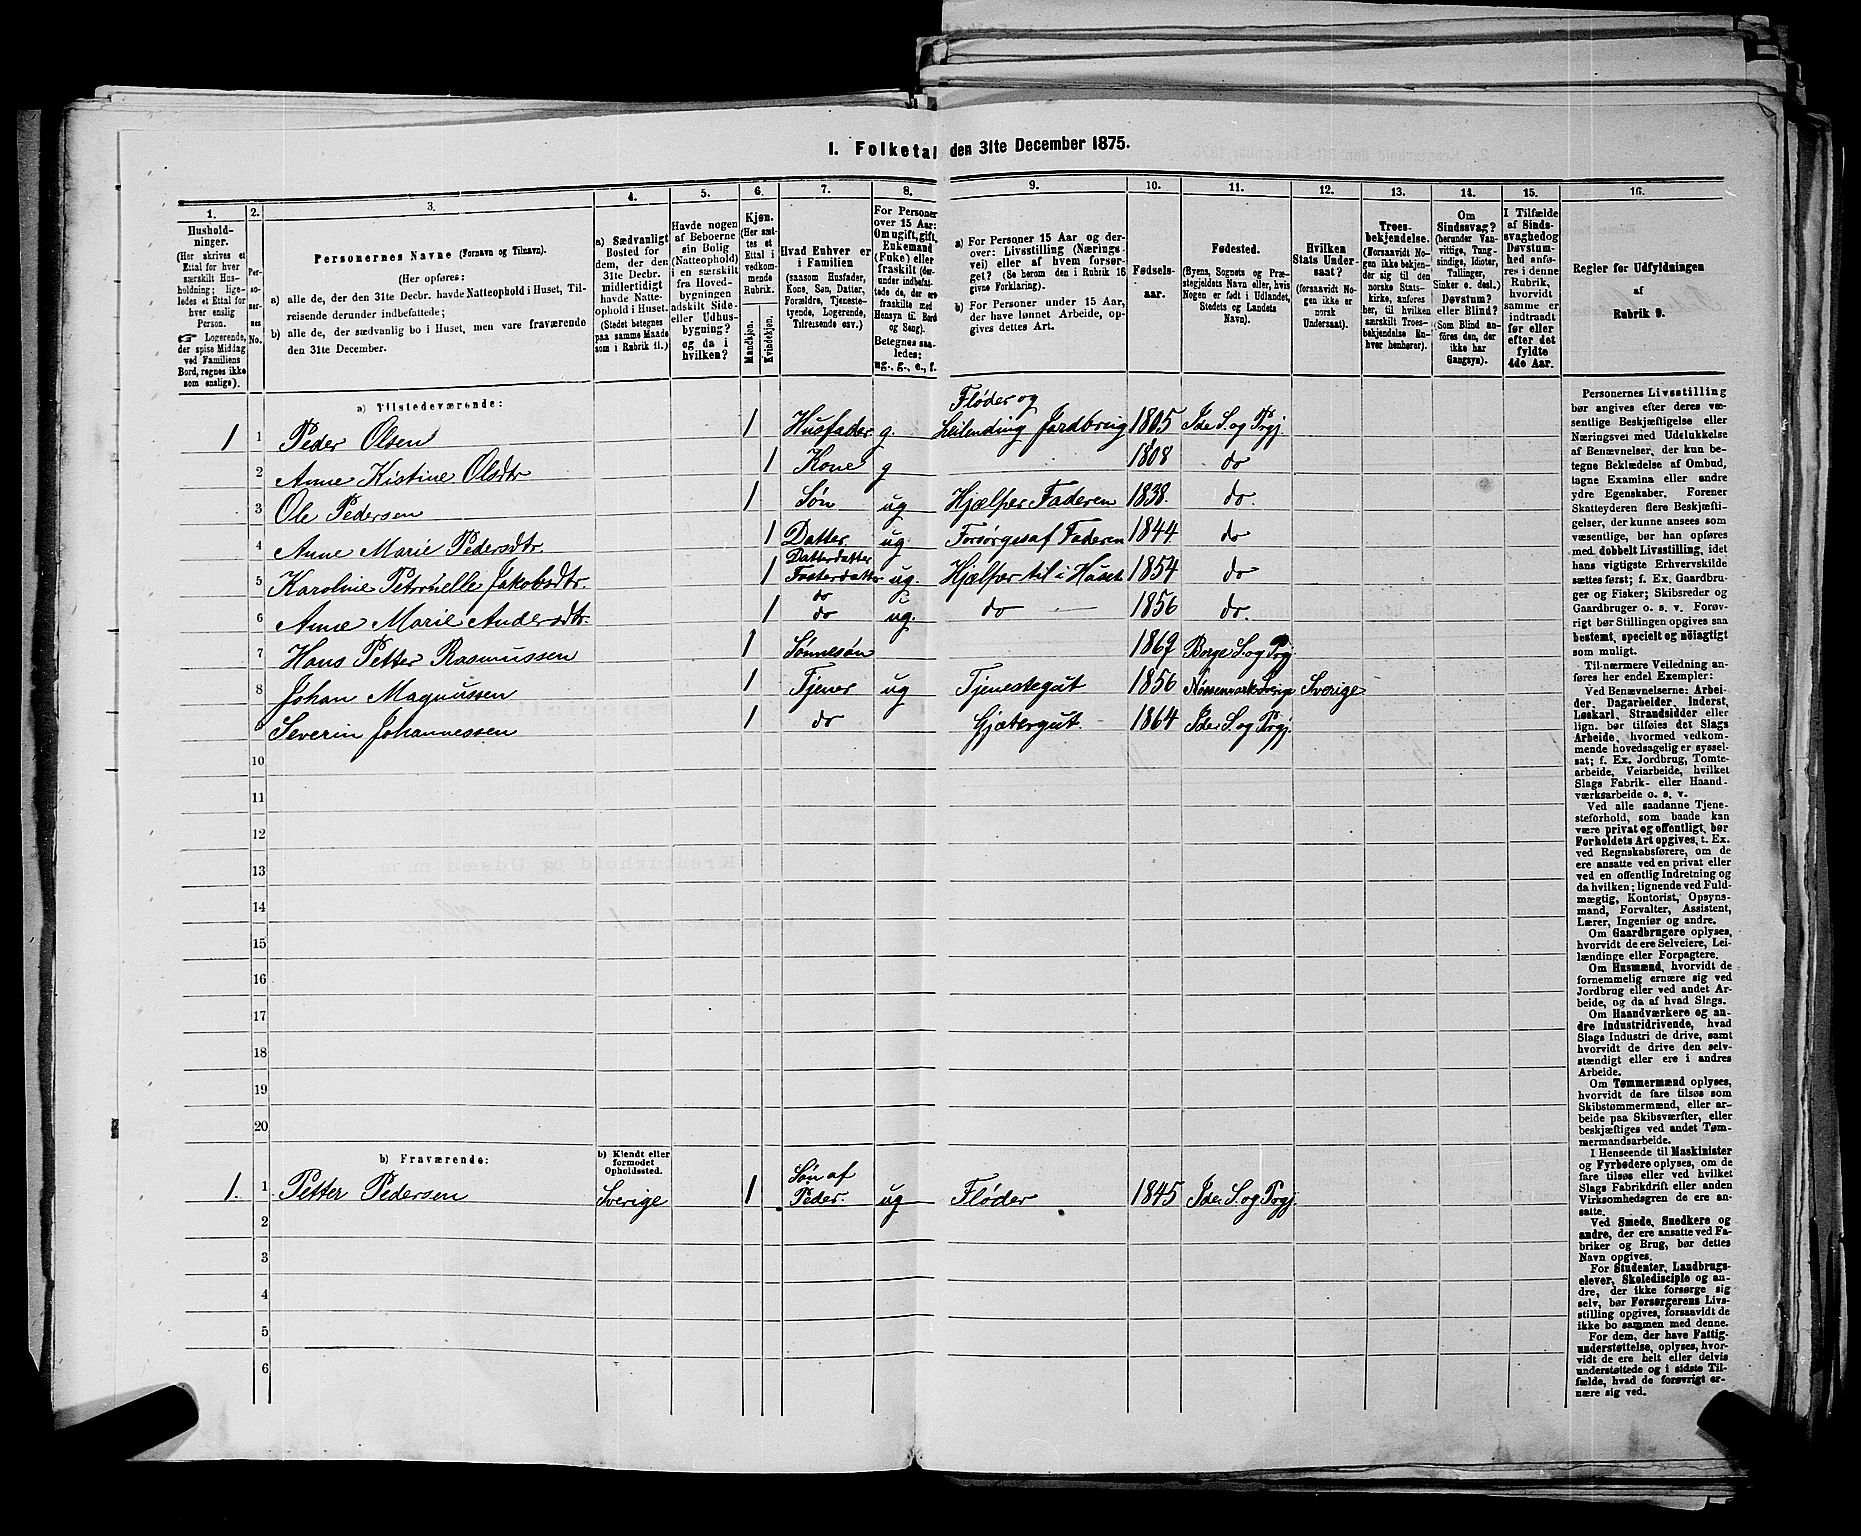 I. Folketal den 31te December 1875.
1.
2.
3.
4.
5.
6.
7.
8.
9.
10.
11.
12.
13.
14.
15.
16.
Husholdninger.
(Her skrives et
Ettal for hver
særskilt Husholdning;
ligeledes et Ettal for
hver enslig
Person.
☞ Logerende,
der spise Middag
ved Familiens
Bord, regnes ikke
som enslige).
Personernes No.
Personernes Navne (Fornavn og Tilnavn).
(Her opføres:
a) alle de, der den 31te Decbr. havde Natteophold i Huset, Tilreisende derunder indbefattede;
b) alle de, der sædvanlig bo i Huset, men vare fraværende
den 31te December.
a) Sædvanligt
Bosted for
dem, der den
31te Decbr.
midlertidigt
havde Natteophold i Huset.
(Stedet betegnes
paa samme Maade
som i Rubrik 11.)
Havde nogen
af Beboerne
sin Bolig
(Natteophold)
i en særskilt
fra Hovedbygningen
adskilt Side-
eller Udhusbygning?
og da i
hvilken?
Kjøn.
(Her sættes et
Ettal i
vedkommende
Rubrik.
Mandkjøn.
Kvindekjøn.
Hvad Enhver er
i Familien
(saasom Husfader,
Kone, Søn, Datter,
Forældre, Tjenestetyende, Logerende,
Tilreisende osv.)
For Personer
over 15 Aar:
Om ugift, gift,
Enkemand
(Enke) eller
fraskilt
Betegnes saaledes:
ug., g., e., f.
a) For Personer 15 Aar og derover: Livsstilling (Næringsvei) eller af hvem forsørget? (Se herom den i Rubrik 16
givne Forklaring).
b) For Personer under 15 Aar,
der have lønnet Arbeide, opgives dettes Art.
Fødselsaar.
Fødested.
(Byens, Sognets og Præstegjeldets Navn eller, hvis
Nogen er født i Udlandet,
Stedets og Landets
Navn).
Hvilken
Stats Undersaat?
(forsaavidt Nogen ikke er
norsk
Undersaat).
Troesbekjendelse.
(Forsaavidt Nogen ikke bekjender sig til den
norske Statskirke, anføres
her, til hvilken
særskilt Troesbekjendelse Enhver henhører).
Om
Sindssvag?
(herunder Vanvittige, Tungsindige, Idioter,
Tullinger,
Sinker o. desl.)
Døvstum?
eller Blind?
(Som Blind anføres den, der
ikke har
Gangsyn).
I Tilfælde
af Sindssvaghed og
Døvstumhed anføres i denne
Rubrik,
hvorvidt
samme er
indtraadt
før eller
efter det
fyldte
4de Aar.
Regler for Udfyldningen
af
Rubrik 9.
a) Tilstedeværende:
1 1 Peder Olsen 1 Husfader g Fløder og Leilending Jordbrug 1805 Ide S. og Prgj
2 Anne Kistine Olsdtr 1 Kone g 1808 do
3 Ole Pedersen 1 Søn ug Hjælper Faderen 1838. do.
4 Anne Marie Pedersdtr. 1 Datter. ug. Forsørges af Faderen 1844 do
5 Karoline Petornelle Jakobsdtr. 1 Datterdatter Fosterdattr ug. Hjælper til i Huset 1854 do
6 Anne Marie Andersdtr. 1 do do ug. do 1856 do.
7 Hans Petter Rasmussen 1 Sønnesøn 1869 Borge S. og Prgj
8 Johan Magnussen 1 Tjener ug Tjenestegut 1856 Sverige
9 Severin Johannessen 1 do Gjætergut. 1864 Ide S. og Prgj.
10
11
12
13
14
15
16
17
18
19
20
b) Fraværende:
b) Kjendt eller
formodet
Opholdssted.
1. 1 Petter Pedersen Sverige 1 Søn af Peder. ug Fløder 1845 Ide. S. og Prgj.
2
3
4
5
6
Personernes Livsstilling
bør angives efter deres væsentlige Beskjæftigelse eller
Næringsvei med Udelukkelse
af Benævnelser, der kun betegne Beklædelse af Ombud,
tagne Examina eller andre
ydre Egenskaber. Forener
Skatteyderen flere Beskjæftigelser, der kunne ansees som
væsentlige, bør han opføres
med dobbelt Livsstilling, idet
hans vigtigste Erhvervskilde
sættes først; f. Ex. Gaardbruger og Fisker; Skibsreder og
Gaardbruger o. s. v. Forøvrigt bør Stillingen opgives saa
bestemt, specielt og nöiagtigt
som muligt.
Til nærmere Veiledning anføres her endel Exempler:
Ved Benævnelserne: Arbeider, Dagarbeider, Inderst,
Løskarl, Strandsidder eller
lign. bør tilføies det Slags
Arbeide, hvormed vedkommende hovedsagelig er sysselsat; f. Ex. Jordbrug, Tomtearbeide, Veiarbeide, hvilket
Slags Fabrik- eller Haandværksarbeide o. s. v.
Ved alle saadanne Tjenesteforhold, som baade kan
være privat og offentligt, bør
Forholdets Art opgives, t. Ex.
ved Regnskabsførere, om de
ere ansatte ved en privat eller
ved en offentlig Indretning og
da hvilken; lignende ved Fuldmægtig, Kontorist, Opsynsmand, Forvalter, Assistent,
Lærer, Ingeniør og andre.
Om Gaardbrugere oplyses,
hvorvidt de ere Selveiere, Leilændinge eller Forpagtere.
Om Husmænd, hvorvidt de
fornemmelig ernære sig ved
Jordbrug eller ved andet Arbeide, og da af hvad Slags.
Om Haandværkere og andre Industridrivende, hvad
Slags Industri de drive, samt
hvorvidt de drive den selvstændigt eller ere i andres
Arbeide.
Om Tømmermænd oplyses,
hvorvidt de fare tilsøs som
Skibstømmermænd, eller arbeide paa Skibsværfter, eller
beskjæftiges ved andet Tømmermandsarbeide.
I Henseende til Maskinister
og Fyrbødere oplyses, om de
fare tilsøs eller ved hvilket
Slags Fabrikdrift eller anden
Virksomhedsgren de ere ansatte.
Ved Smede, Snedkere og
andre, der ere ansatte ved Fabriker og Brug, bør dettes
Navn opgives.
For Studenter, Landbrugselever, Skoledisciple og andre, der ikke forsørge sig
selv, bør Forsørgerens Livsstilling opgives, forsaavidt de
ikke bo sammen med denne.
For dem, der have Fattigunderstøttelse, oplyses, hvorvidt de ere helt eller delvis
understøttede og i sidste Tilfælde, hvad de forøvrigt ernære sig ved.